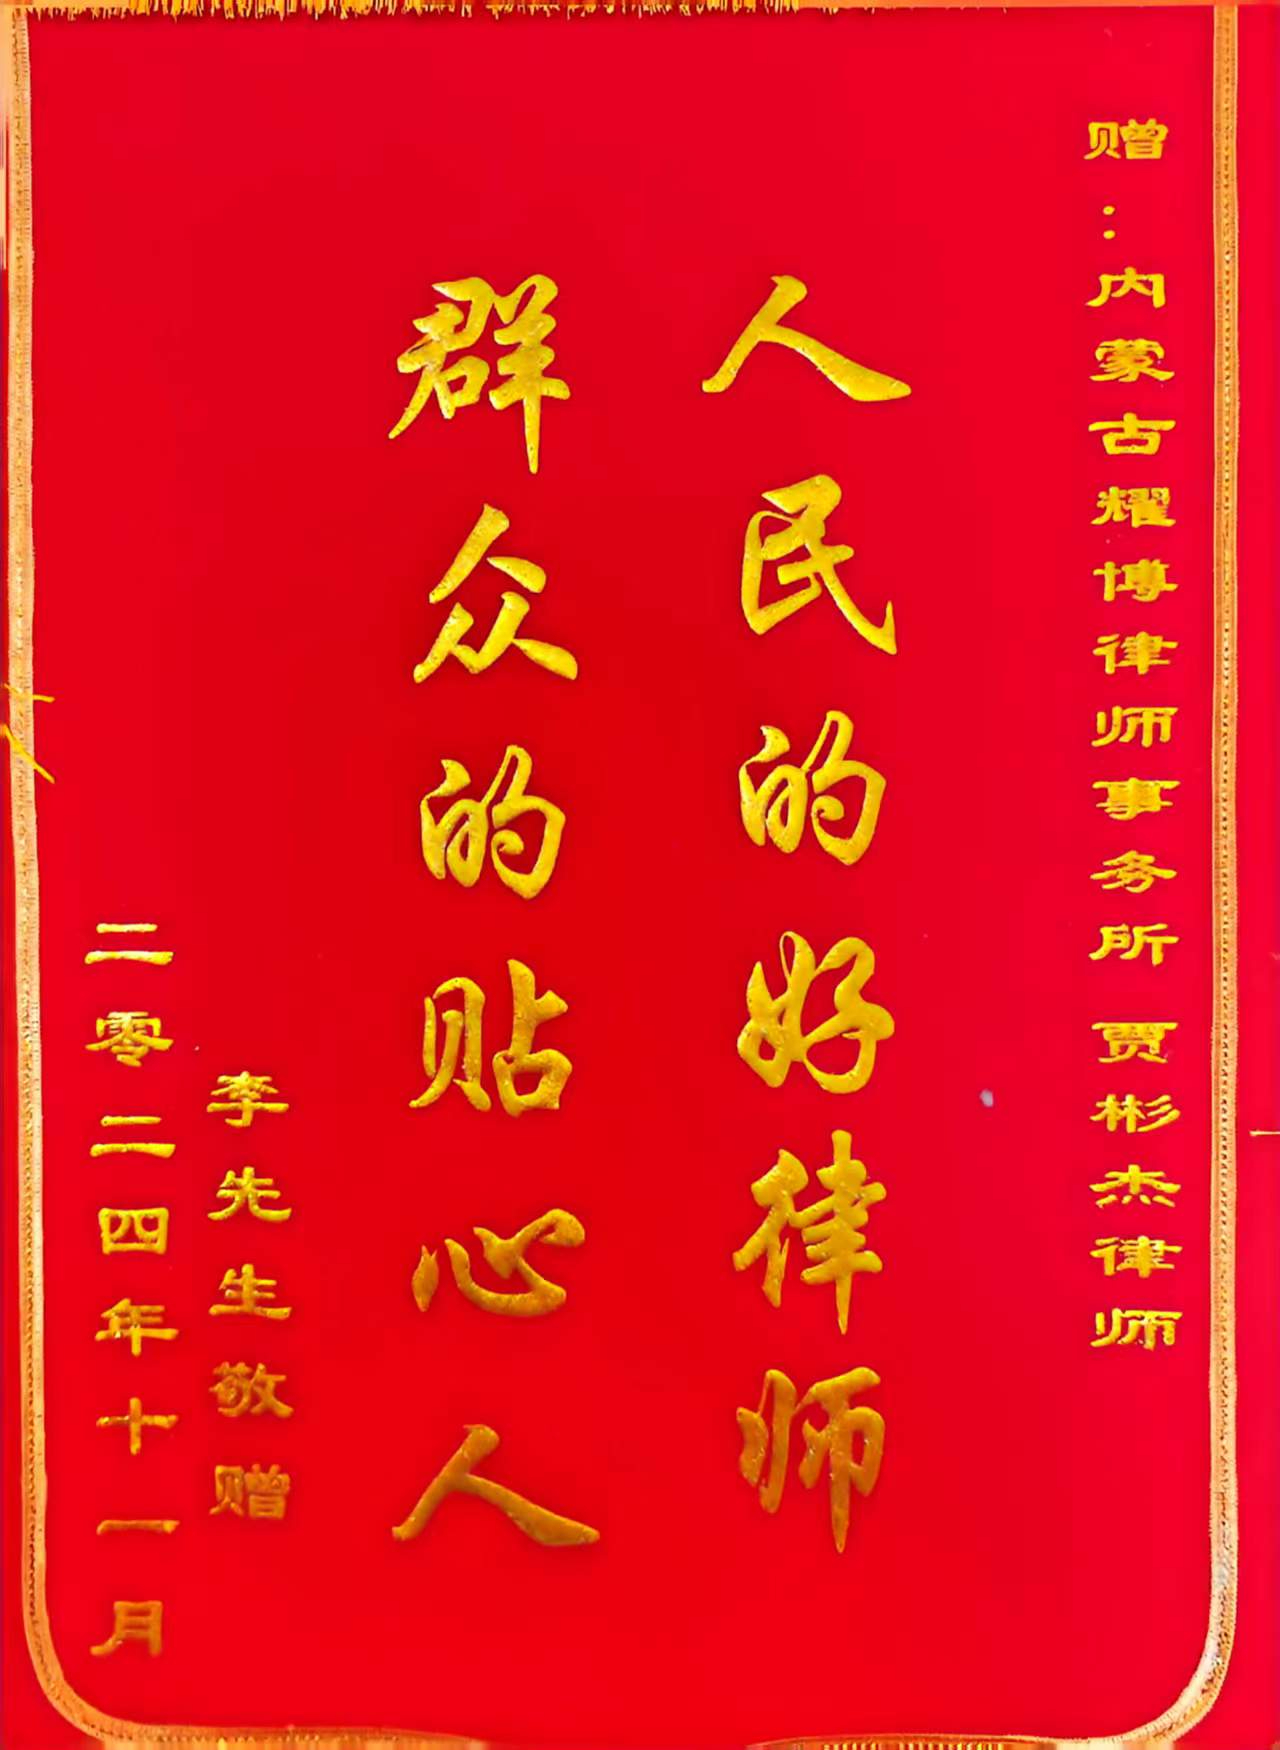 赠：内蒙古耀博律师事务所 贾彬杰律师
人民的好律师
群众的贴心人
李先生敬赠
二零二四年十一月